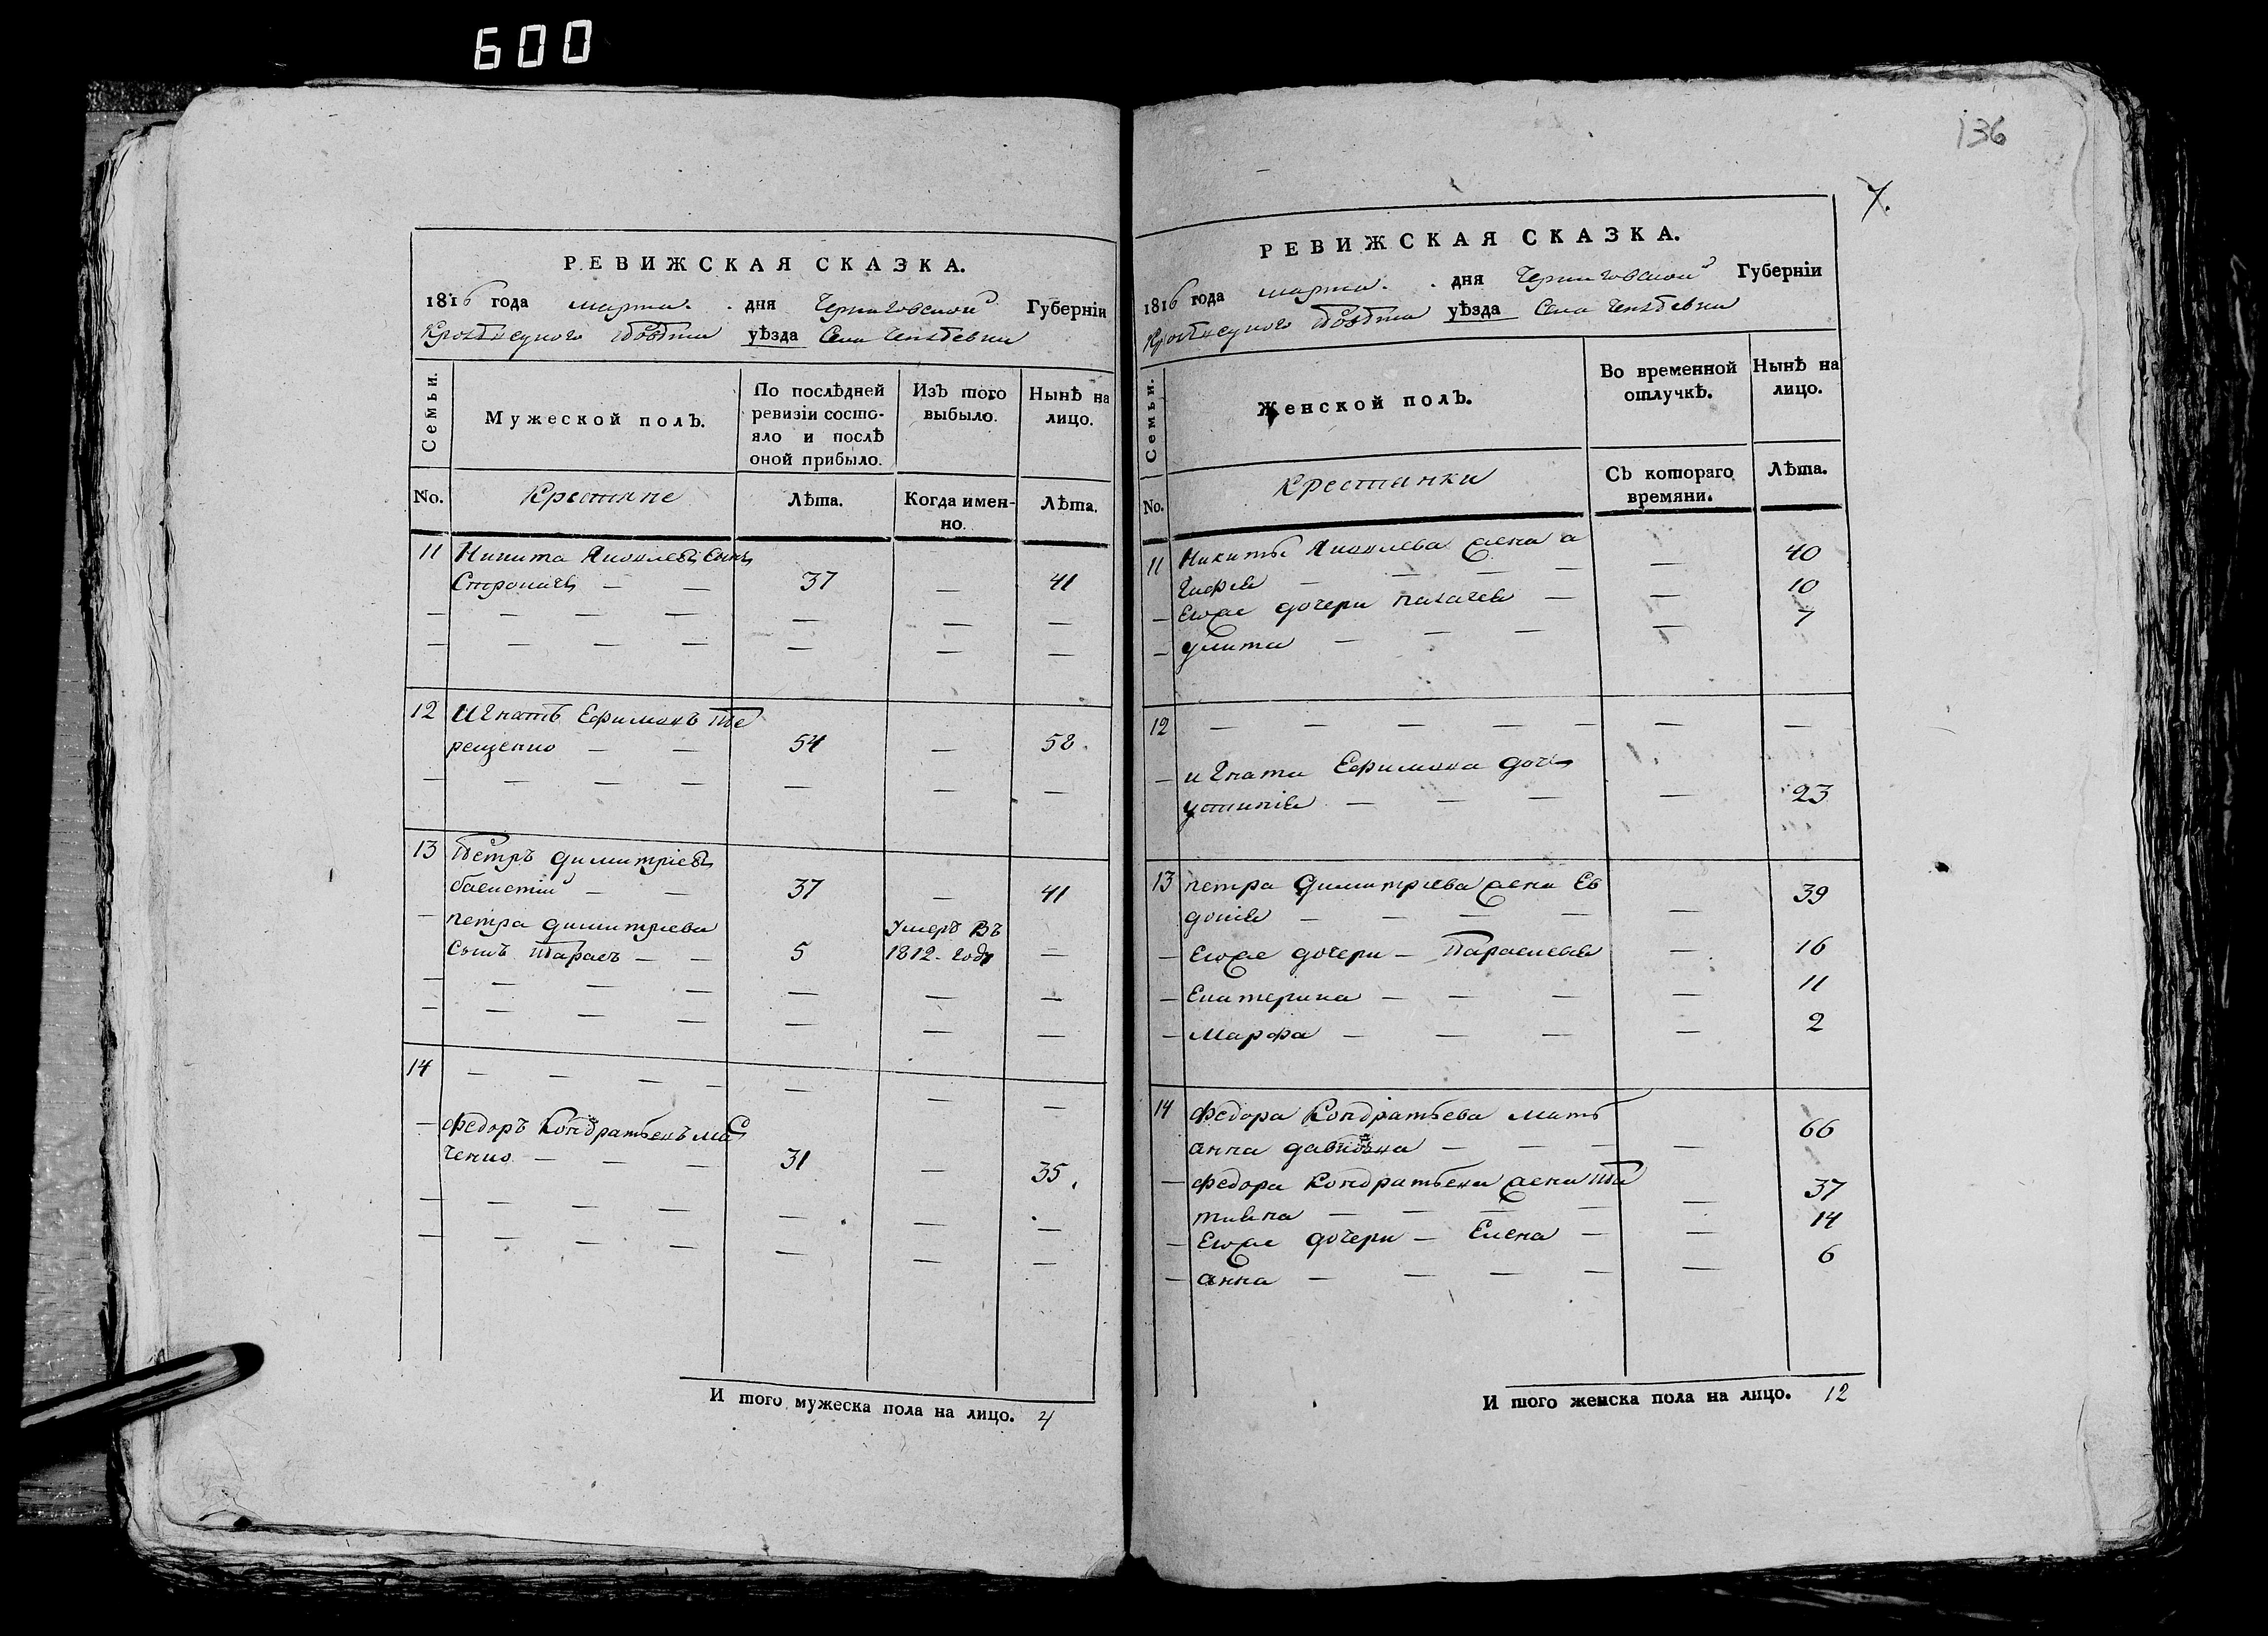 600
136
7.
РЕВИЖСКАЯ СКАЗКА.
1816 года марта . дня Черниговской Губерніи
Кролевецкого повѣта уѣзда Села
Семьи.
Мужеской полъ.
По послѣдней ревизіи состояло и послѣ оной прибыло.
Изъ того выбыло.
Нынѣ на лицо.
No.
Крестяне
Лѣта.
Когда именно.
Лѣта.
11 Никита Яковлевъ Сынъ
— — 37 — 41
12 Игнатъ Ефимовъ Те
рещенко — — 54 — 58.
13 Петръ димитріевъ
— — 37 — 41
— петра димитриева Умеръ Въ
Сынъ Тарасъ — — 5 1812. году —
14 — — — — — — —
— Федоръ Кондратьевъ
ченко — — — 31 — 35.
И того мужеска пола на лицо. 4
РЕВИЖСКАЯ СКАЗКА.
1816 года марта . дня Черниговской Губерніи
Кролевецкого повѣта уѣзда Села
Семьи.
Женской полъ.
Во временной отлучкѣ.
Нынѣ на лицо.
No.
Крестянки
Съ котораго времяни.
Лѣта.
11 Никиты Яковлева жена а
гафия — — — — — 40
— Егоже дочери пелагея — — 10
— улита — — — — 7
12 — — — — — — —
— игната Ефимова дочь
устинія — — — — 23
13 петра Димитриева жена Ев
докія — — — — — 39
— Егоже дочери — Параскевія — 16
— Екатерина — — — — 11
— Марфа — — — — 2
14 Федора Кондратьева мать
анна давидова — — — — 66
— Федора Кондратьева жена Та
тияна — — — — — 37
— Егоже дочери — Елена — — 14
— анна — — — — — 6
И того женска пола на лицо. 12